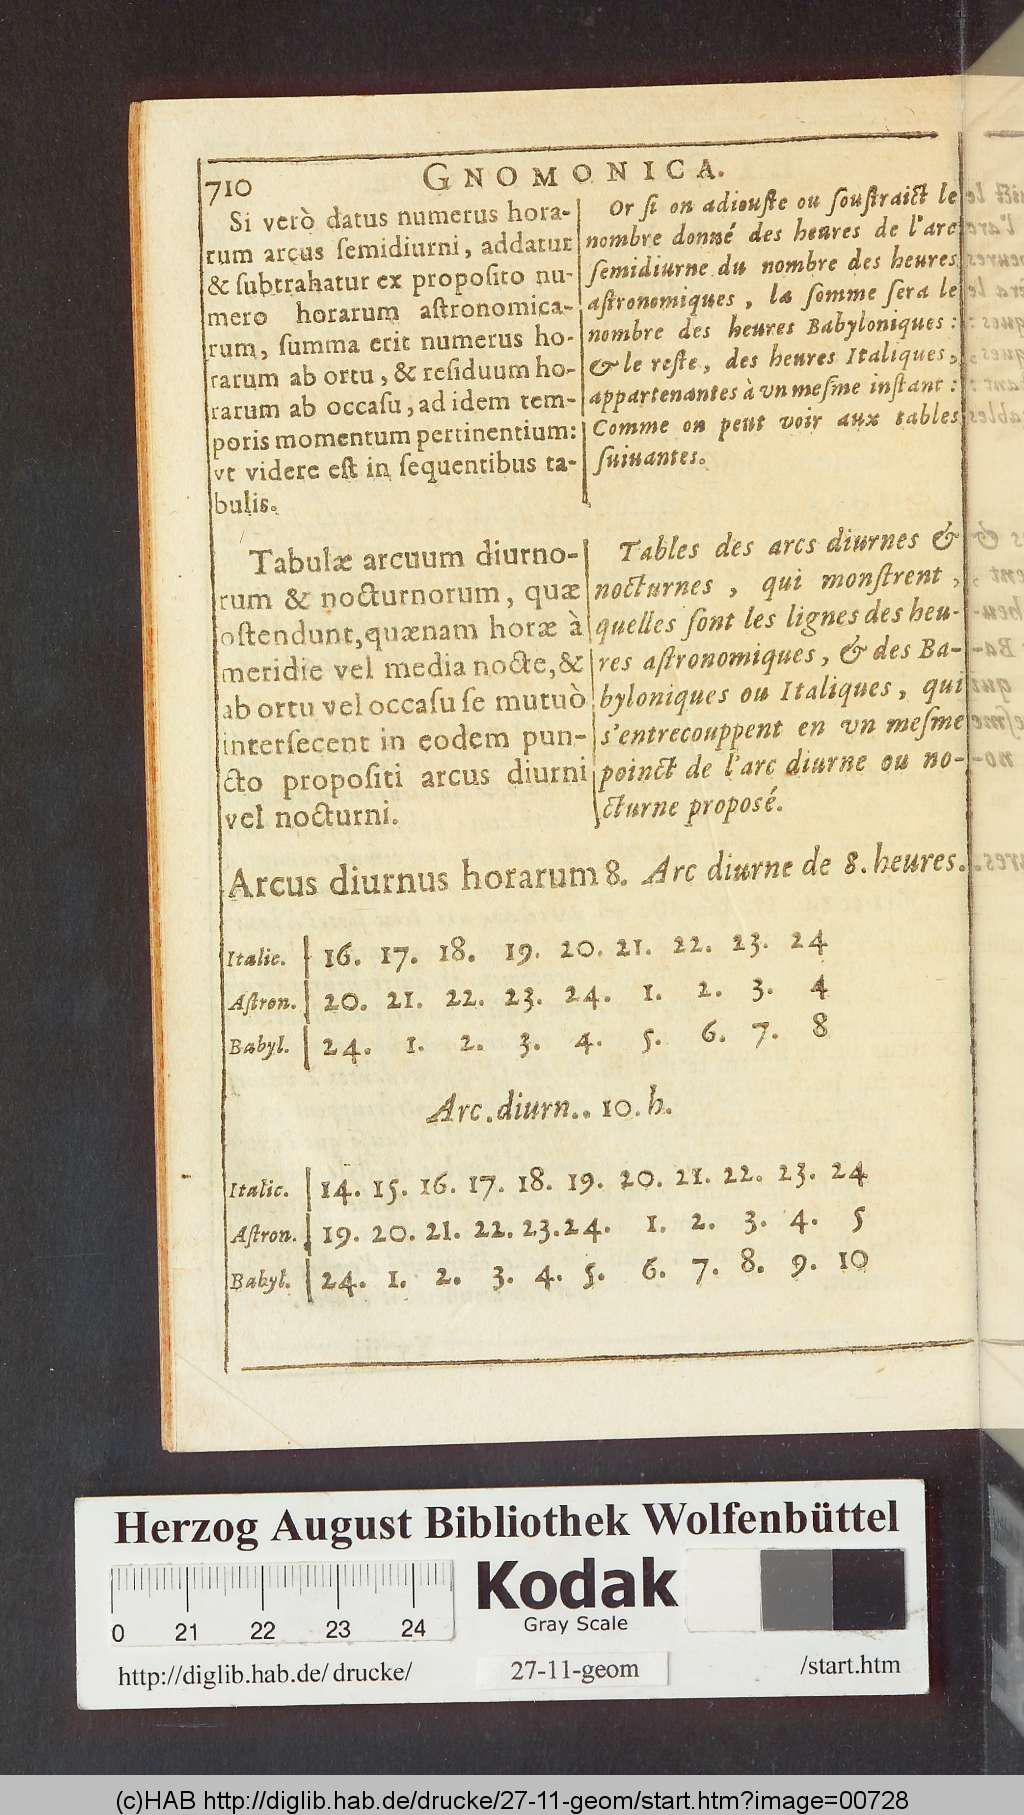 710
GNOMONICA.
Si verò datus numerus hora-
rum arcus ſemidiurni, addatur
& ſubtrahatur ex propoſito nu-
mero horarum aſtronomica-
rum, ſumma erit numerus ho-
rarum ab ortu, & reſiduum ho-
rarum ab occaſu, ad idem tem-
poris momentum pertinentium:
vt videre eſt in ſequentibus ta-
bulis.
Or ſi on adiouſte ou ſouſtraict le
nombre donné des heures de l'arc
ſemidiurne du nombre des heures
aſtronomiques, la ſomme ſera le
nombre des heures Babyloniques:
& le reſte, des heures Italiques,
appartenantes à vn meſme inſtant:
Comme on peut voir aux tables
ſuiuantes.
Tabulæ arcuum diurno-
rum & nocturnorum, quæ
oſtendunt, quænam horæ à
meridie vel media nocte, &
ab ortu vel occaſu ſe mutuò
interſecent in eodem pun-
cto propoſiti arcus diurni
vel nocturni.
Tables des arcs diurnes &
nocturnes, qui monſtrent,
quelles ſont les lignes des heu-
res aſtronomiques, & des Ba-
byloniques ou Italiques, qui
s'entrecouppent en vn meſme
poinct de l'arc diurne ou no-
cturne proposé.
Arcus diurnus horarum 8. Arc diurne de 8. heures.
Italic. 16. 17. 18. 19. 20. 21. 22. 23. 24
Aſtron. 20. 21. 22. 23. 24. 1. 2. 3. 4
Babyl. 24. 1. 2. 3. 4. 5. 6. 7. 8
Arc. diurn.. 10. h.
Italic. 14. 15. 16. 17. 18. 19. 20. 21. 22. 23. 24
Aſtron. 19. 20. 21. 22. 23. 24. 1. 2. 3. 4. 5
Babyl. 24. 1. 2. 3. 4. 5. 6. 7. 8. 9. 10
Herzog August Bibliothek Wolfenbüttel
0 21 22 23 24
Kodak
Gray Scale
http://diglib.hab.de/drucke/ 27-11-geom /start.htm
(c)HAB http://diglib.hab.de/drucke/27-11-geom/start.htm?image=00728